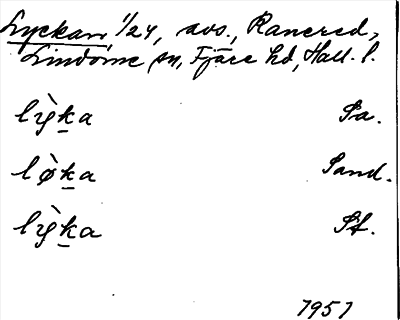 Lyckan, 1/24, avs., Ranered,
Lindome sn, Fjäre hd, Hall. l.
lỳk̲a Sa.
lø̀k̲a Sand.
lỳk̲a St.
1951